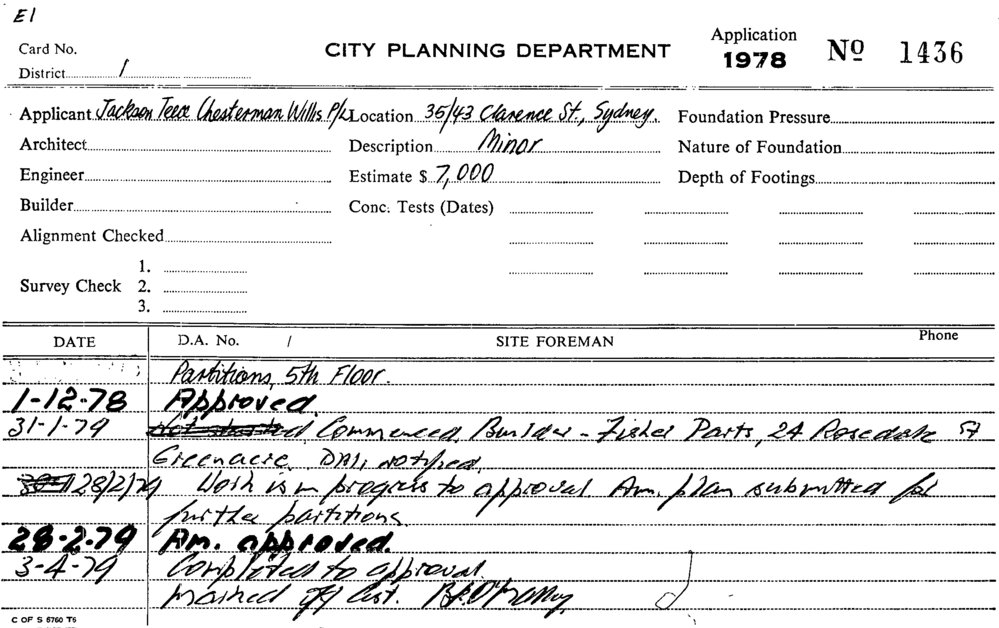 E1
Card No.
CITY PLANNING DEPARTMENT
Application
1978
No 1436
District 1
Applicant Jackson Teece Chesterman Willis P/L Location 35/43 Clarence St., Sydney. Foundation Pressure
Architect Description Minor Nature of Foundation
Engineer Estimate $ 7,000 Depth of Footings
Builder Conc. Tests (Dates)
Alignment Checked
1.
Survey Check 2.
3.
DATE D.A. No. / SITE FOREMAN Phone
Partitions, 5th Floor.
1-12-78 Approved.
31-1-79 Not started Commenced, Builder - Fisher Parts, 24 Rosedale St
Greenacre. notified.
28/2/79 Work is in progress to approval Am. plan submitted for
further partitions.
28-2-79 Am. approved.
3-4-79 Completed to approval.
marked off list.
C OF S 6760 T6